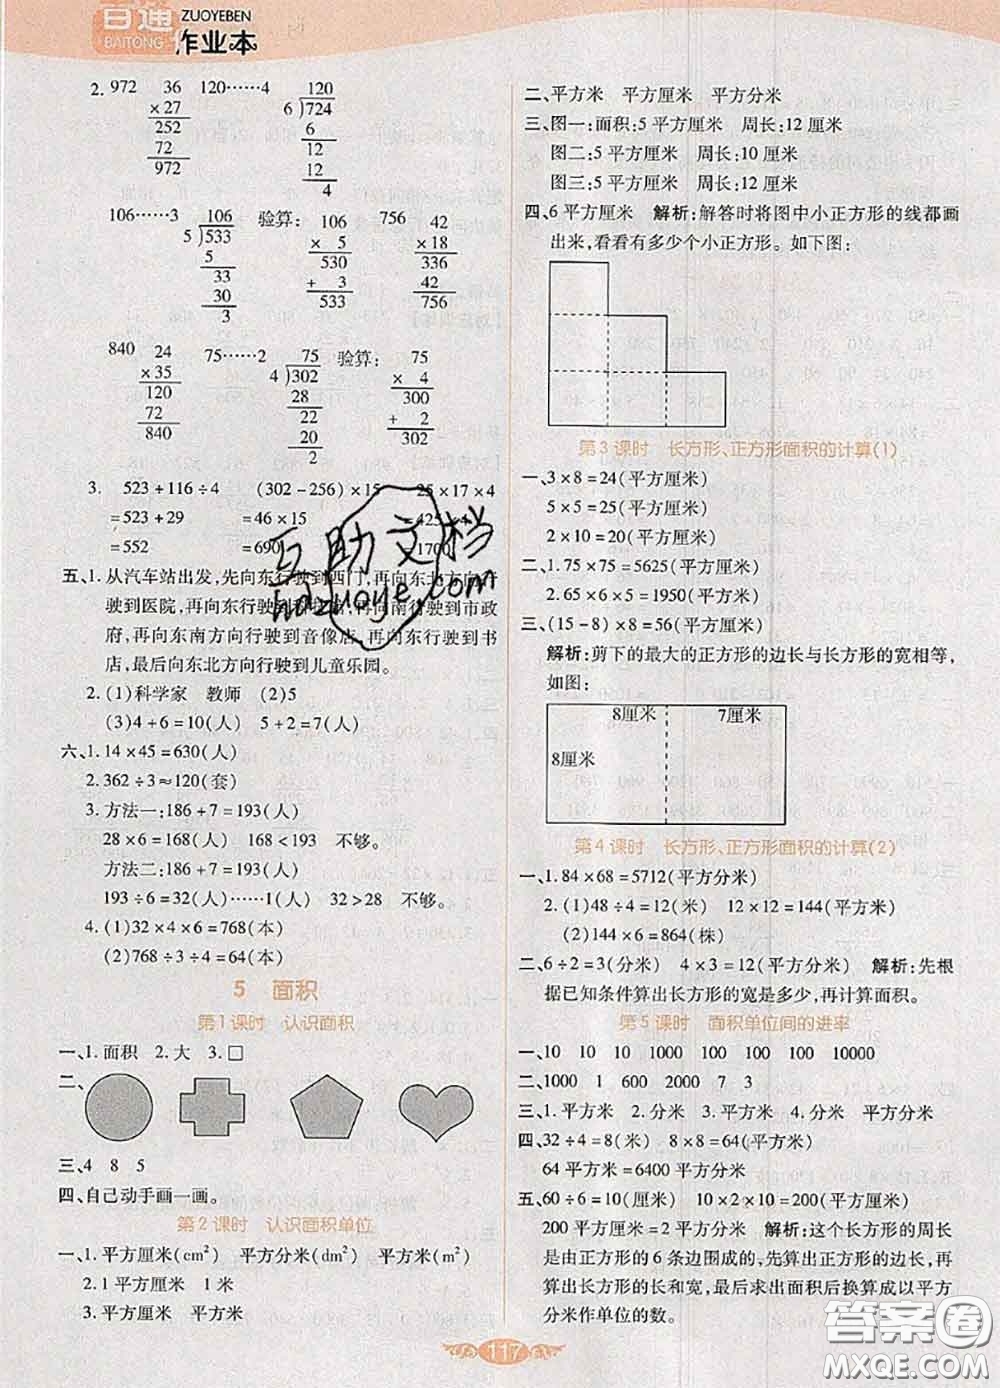 百通
BAITONG
ZUOYEBEN
作业本
2. 972 36 120……4 120
× 27 6)724
252 6
72 12
972 12
4
106……3 106 验算: 106 756 42
5)533 × 5 × 18
5 530 336
33 + 3 42
30 533 756
3
840 24 75……2 75 验算: 75
× 35 4)302 × 4
120 28 300
72 22 + 2
840 20 302
2
3. 523+116÷4 (302-256)×15 25×17×4
=523+29 =46×15
=552 =690 1700
五、1. 从汽车站出发,先向东行驶到西门,再向东北方向行
驶到医院,再向东行驶到 ,再向南行驶到市政
府,再向东南方向行驶到音像店,再向东行驶到书
店,最后向东北方向行驶到儿童乐园。
2. (1)科学家 教师 (2)5
(3)4+6=10(人) 5+2=7(人)
六、1. 14×45=630(人)
2. 362÷3≈120(套)
3. 方法一:186+7=193(人)
28×6=168(人) 168<193 不够。
方法二:186+7=193(人)
193÷6=32(人)……1(人) 32>28 不够。
4. (1)32×4×6=768(本)
(2)768÷3÷4=64(本)
5 面积
第1课时 认识面积
一、1. 面积 2. 大 3. □
二、
三、4 8 5
四、自己动手画一画。
第2课时 认识面积单位
一、1. 平方厘米(cm²) 平方分米(dm²) 平方米(m²)
2. 1平方厘米 1米
3. 平方厘米 平方米
二、平方米 平方厘米 平方分米
三、图一:面积:5平方厘米 周长:12厘米
图二:5平方厘米 周长:10厘米
图三:5平方厘米 周长:12厘米
四、6平方厘米 解析:解答时将图中小正方形的线都画
出来,看看有多少个小正方形。如下图:
第3课时 长方形、正方形面积的计算(1)
一、3×8=24(平方厘米)
5×5=25(平方厘米)
2×10=20(平方厘米)
二、1. 75×75=5625(平方厘米)
2. 65×6×5=1950(平方米)
三、(15-8)×8=56(平方厘米)
解析:剪下的最大的正方形的边长与长方形的宽相等,
如图:
8厘米 7厘米
8厘米
第4课时 长方形、正方形面积的计算(2)
一、1. 84×68=5712(平方分米)
2. (1)48÷4=12(米) 12×12=144(平方米)
(2)144×6=864(株)
二、6÷2=3(分米) 4×3=12(平方分米) 解析:先根
据已知条件算出长方形的宽是多少,再计算面积。
第5课时 面积单位间的进率
一、10 10 10 1000 100 100 100 10000
二、1000 1 600 2000 7 3
三、1. 平方米 2. 分米 3. 平方厘米 4. 分米 平方分米
四、32÷4=8(米) 8×8=64(平方米)
64平方米=6400平方分米
五、60÷6=10(厘米) 10×2×10=200(平方厘米)
200平方厘米=2平方分米 解析:这个长方形的周长
是由正方形的6条边围成的,先算出正方形的边长,再
算出长方形的长和宽,最后求出面积后换算成以平方
分米作单位的数。
117
互助文档
hdzuoye.com
答案圈
MXQE.COM